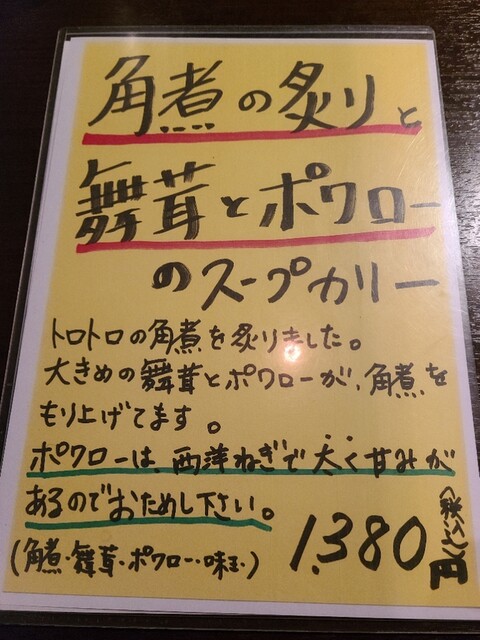 角煮の炙りと
舞茸とポワロー
のスープカリー
トロトロの角煮を炙りました。
大きめの舞茸とポワローが、角煮を
もり上げてます。
ポワローは、西洋ねぎで太く甘みが
あるのでおためし下さい。
(角煮・舞茸・ポワロー・味玉・)
1,380円
(税込)